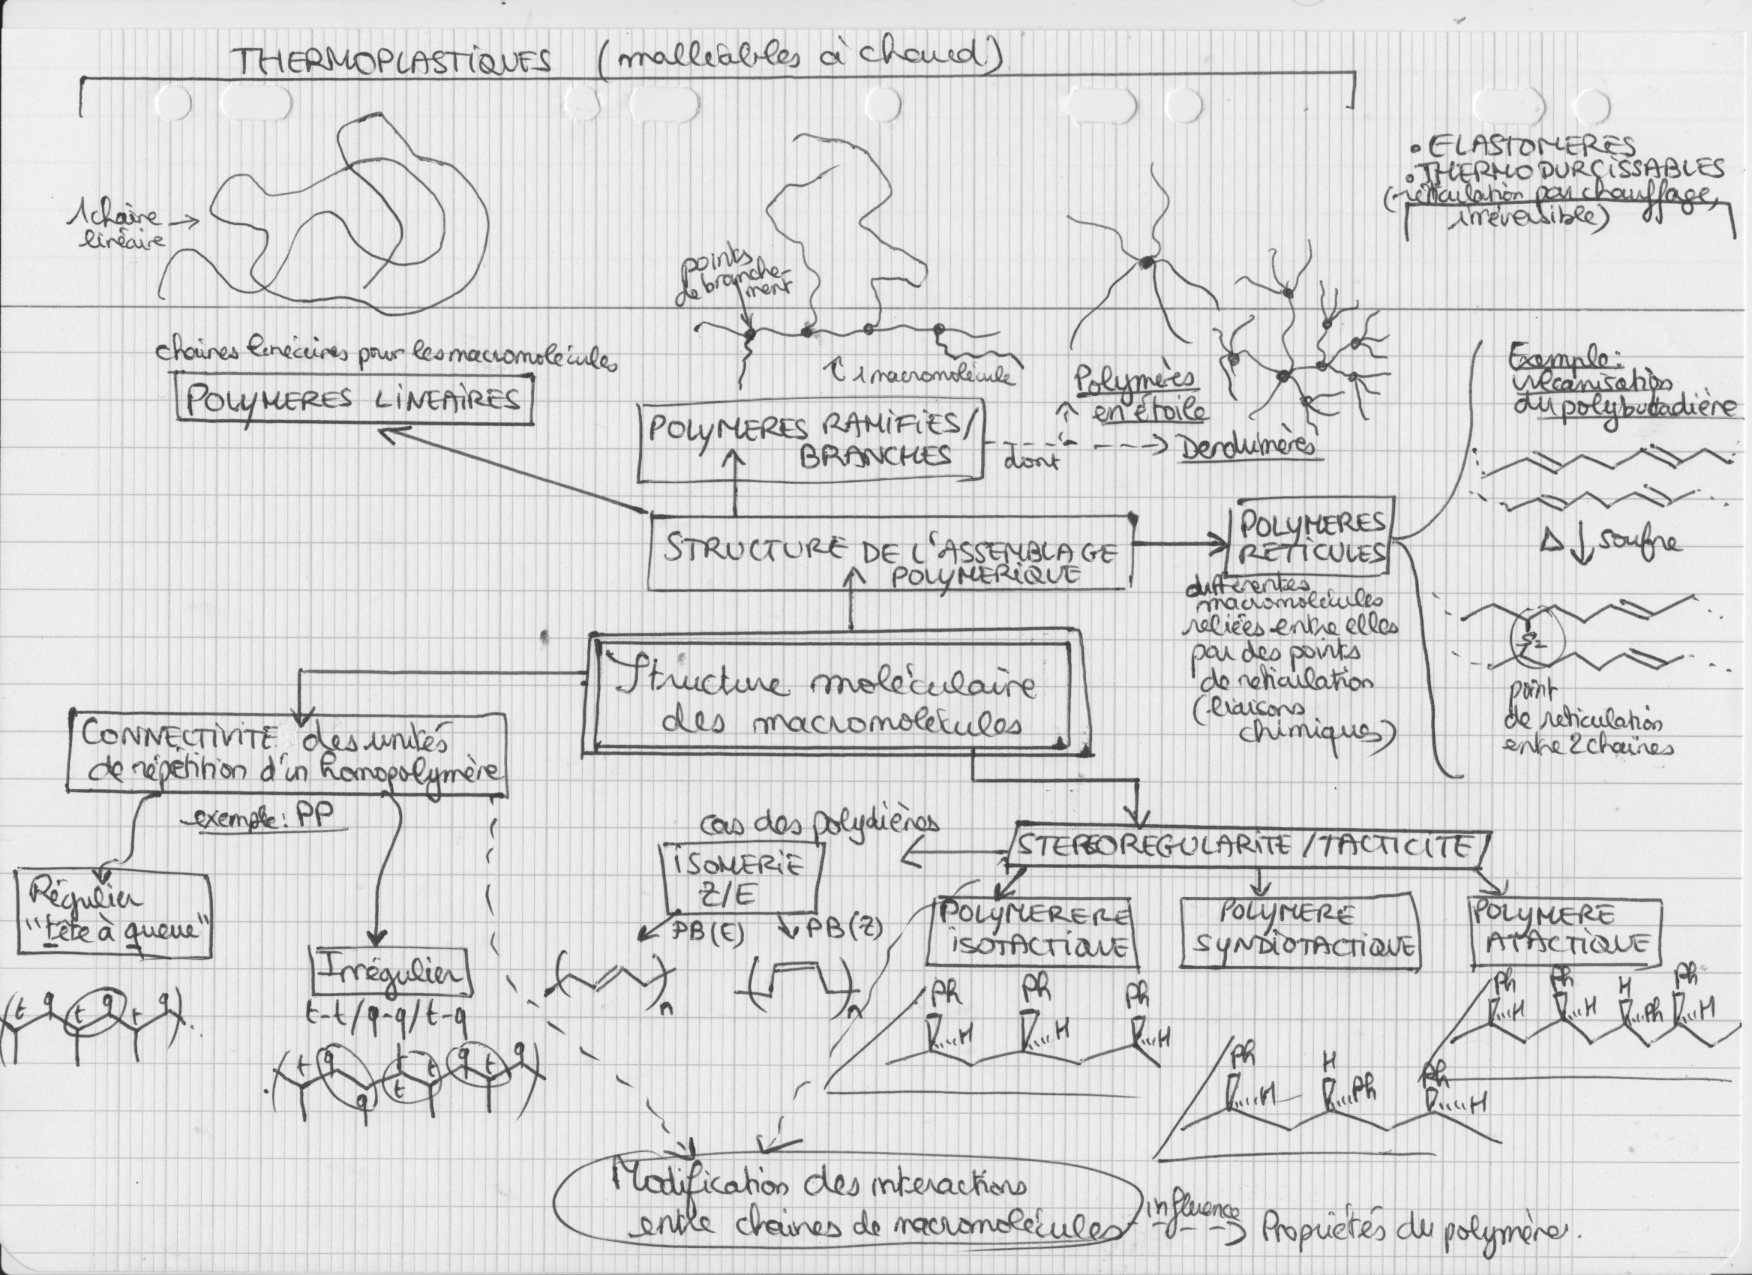 THERMOPLASTIQUES (malléables à chaud)
• ELASTOMERES
• THERMODURCISSABLES
(réticulation par chauffage,
irréversible)
1 chaîne
linéaire
points
de branche-
ment
chaînes linéaires pour les macromolécules
POLYMERES LINEAIRES
1 macromolécule
POLYMERES RAMIFIES/
BRANCHES
dont
Polymères
en étoile
Dendrimères
Exemple:
vulcanisation
du polybutadiène
Δ soufre
S2
point
de réticulation
entre 2 chaînes
STRUCTURE DE L'ASSEMBLAGE
POLYMERIQUE
POLYMERES
RETICULES
différentes
macromolécules
reliées entre elles
par des points
de réticulation
(liaisons
chimiques)
Structure moléculaire
des macromolécules
CONNECTIVITE des unités
de répétition d'un homopolymère
exemple: PP
Régulier
"tête à queue"
t q t q t q
Irrégulier
t-t/q-q/t-q
t q q t t q t q
cas des polydiènes
ISOMERIE
Z/E
PB(E)
PB(Z)
n
n
STEREOREGULARITE/TACTICITE
POLYMERERE
ISOTACTIQUE
Ph Ph Ph
H H H
POLYMERE
SYNDIOTACTIQUE
Ph H Ph
H Ph H
POLYMERE
ATACTIQUE
Ph Ph H Ph
H H Ph H
Modification des interactions
entre chaînes de macromolécules
influence
Propriétés du polymère.